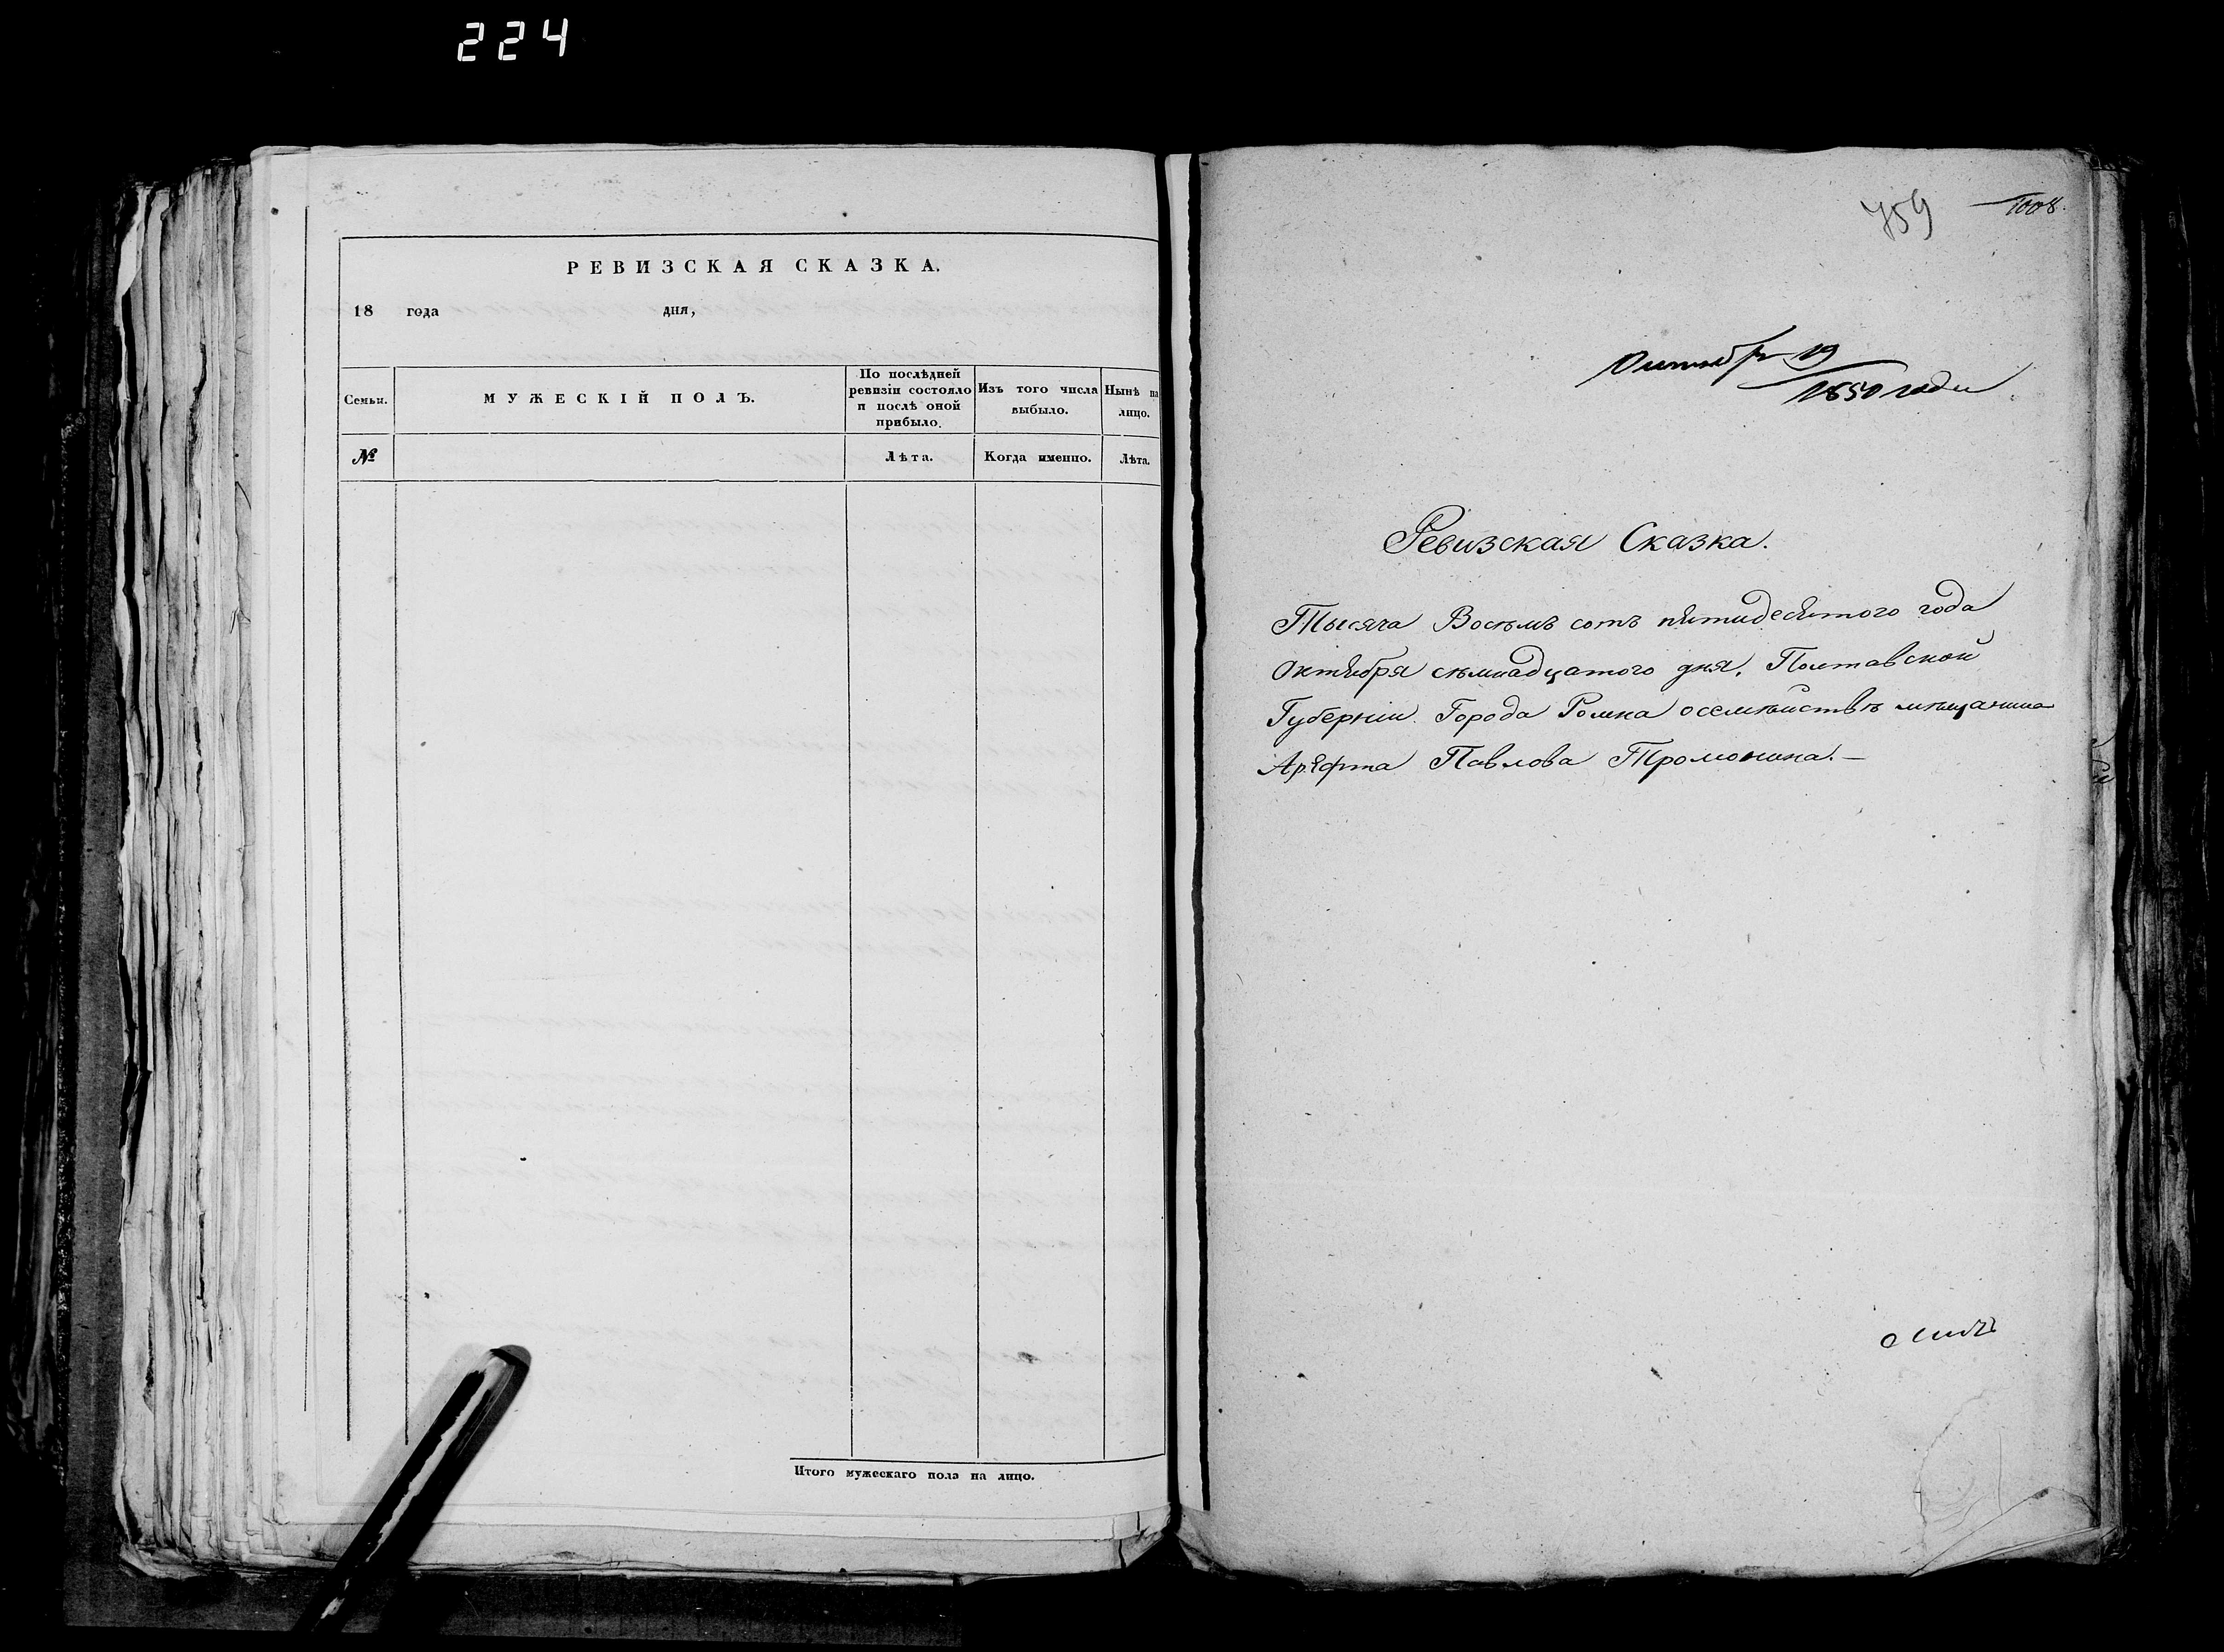 224
РЕВИЗСКАЯ СКАЗКА.
18 года дня,
Семьи.
МУЖЕСКІЙ ПОЛЪ.
По послѣдней
ревизіи состояло
и послѣ оной
прибыло.
Изъ того числа
выбыло.
Нынѣ на
лицо.
№
Лѣта.
Когда именно.
Лѣта.
Итого мужескаго пола на лицо.
759
1008.
Октября 19
1850 года
Ревизская Сказка.
Тысяча Восемь сотъ пятидесятого года
Октября семнадцатого дня, Полтавской
Губерніи. Города Ромна о семѣйствѣ мѣщанина
Арефта Павлова Тромонина.—